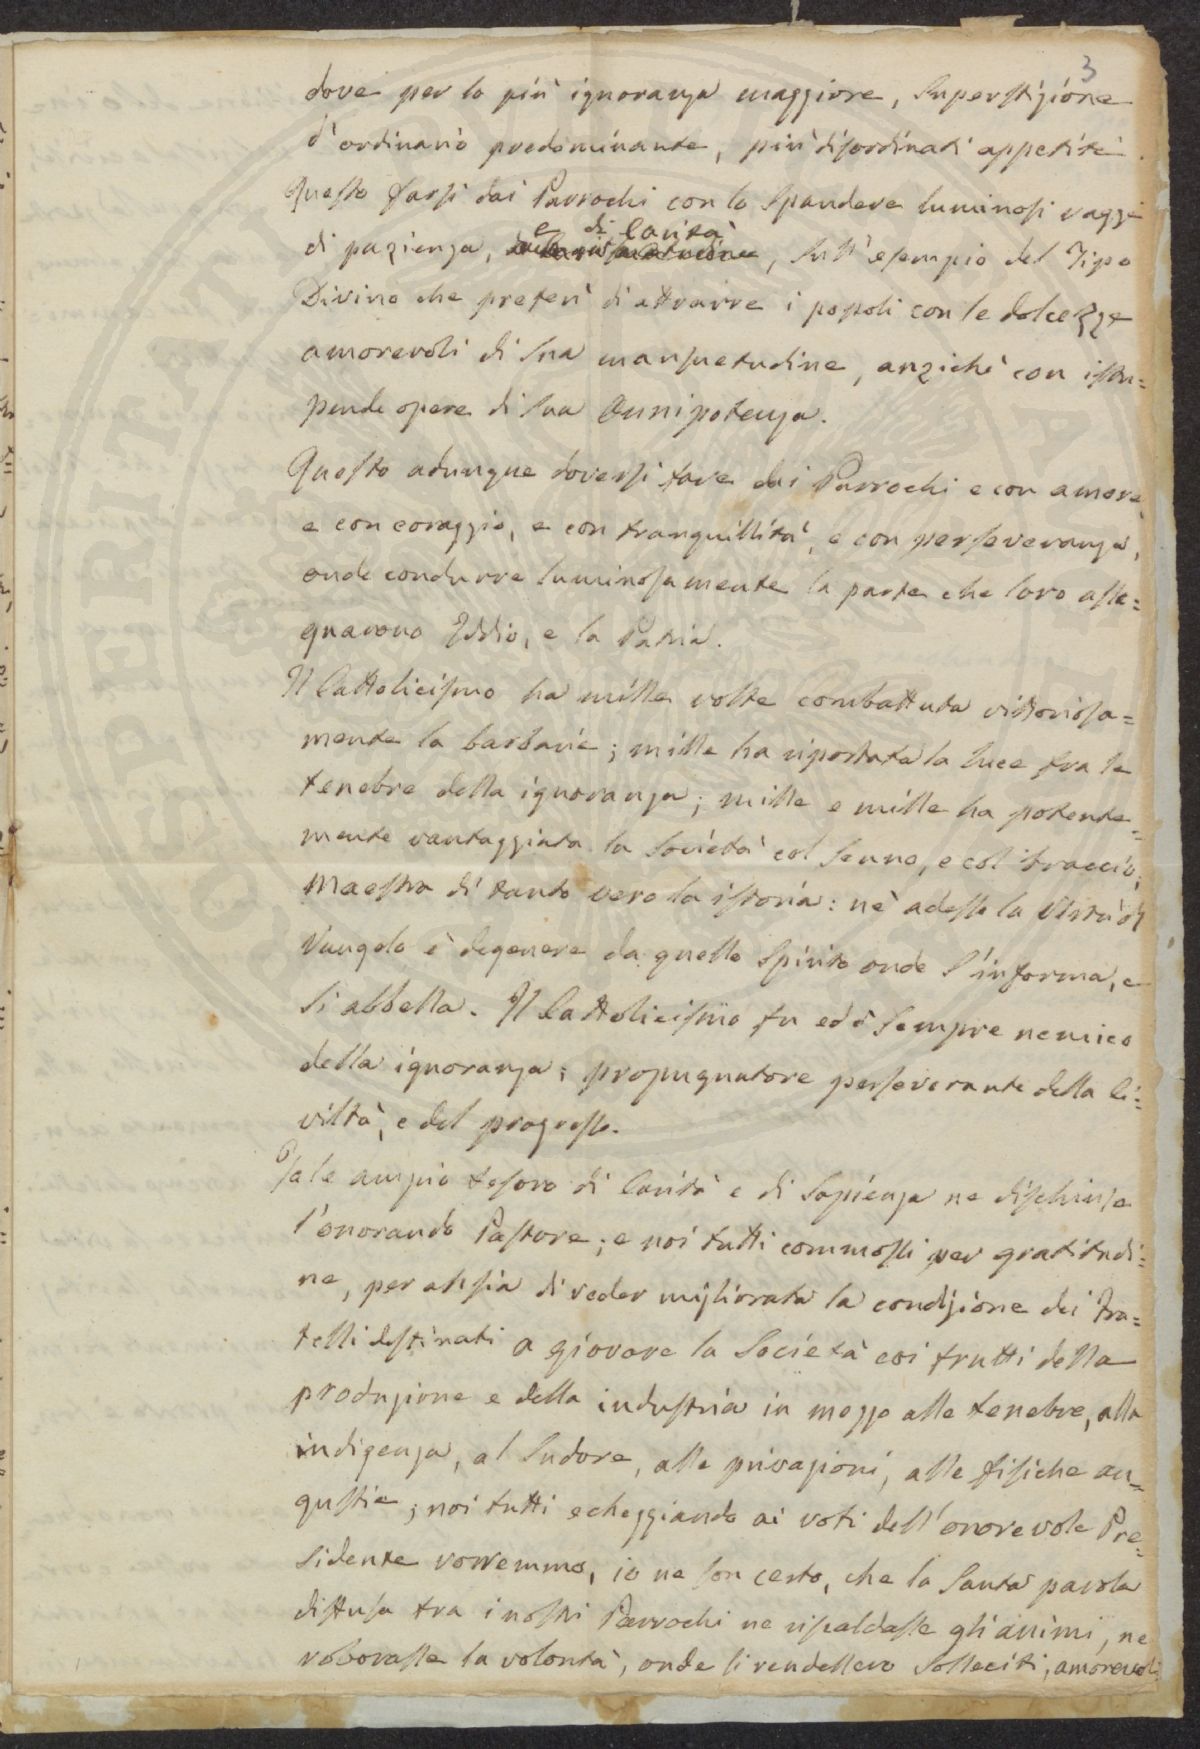 3
dove per lo più ignoranza maggiore, Superstizione
d'ordinario predominante, più disordinati appetiti.
Questo farsi dai Parrochi con lo Spandere luminosi raggi
e di Carità
di pazienza, , Sull'esempio del Tipo
Divino che preferì di attrarre i popoli con le dolcezze
amorevoli di Sua mansuetudine, anzichè con istu=
pende opere di Sua Onnipotenza.
Questo adunque doversi fare dai Parrochi e con amore,
e con coraggio, e con tranquillità, e con perseveranza,
onde condurre luminosamente la parte che loro asse=
gnarono Iddio, e la Patria.
Il Cattolicismo ha mille volte combattuta vittoriosa=
mente la barbarie; mille ha riportata la luce fra le
tenebre della ignoranza; mille e mille ha potente=
mente vantaggiata la Società col Senno, e col braccio;
Maestra di tanto vero la istoria: nè adesso la Virtù di
Vangelo è degenere da quello Spirito onde S'informa, e
Si abbella. Il Cattolicismo fu ed è Sempre nemico
della ignoranza; propugnatore perseverante della Ci=
viltà, e del progresso.
Tale ampio tesoro di Carità e di Sapienza ne dischiuse
l'onorando Pastore; e noi tutti commossi per gratitudi=
ne, per ansia di veder migliorata la condizione dei fra=
telli destinati a giovare la Società coi frutti della
produzione e della industria in mezzo alle tenebre, alla
indigenza, al Sudore, alle privazioni, alle fisiche an=
gustie; noi tutti echeggiando ai voti dell'onorevole Pre=
sidente vorremmo, io ne son certo, che la Santa parola
diffusa tra i nostri Parrochi ne riscaldasse gli animi, ne
roborasse la volontà, onde Si rendessero Solleciti, amorevoli